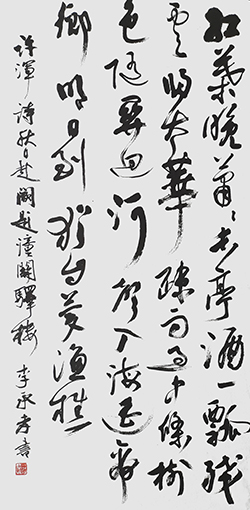 紅葉晚蕭〻長亭酒一瓢殘
雲歸太華疏雨過中條樹
色随關迥河聲入海遥帝
鄉明日到猶自夢漁樵
許渾詩秋日赴闕題潼關驛樓 李承孝書